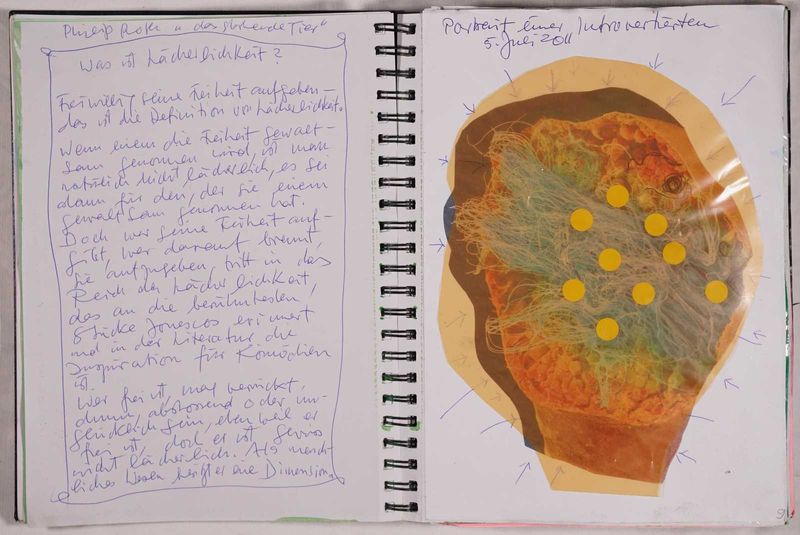 Philip Roth „das sterbende Tier"
Was ist Lächerlichkeit?
Freiwillig seine Freiheit aufgeben –
das ist die Definition von Lächerlichkeit.
Wenn einem die Freiheit gewalt-
sam genommen wird, ist man
natürlich nicht lächerlich, es sei
denn für den, der sie einem
gewaltsam genommen hat.
Doch wer seine Freiheit auf-
gibt, wer darauf brennt,
sie aufzugeben, tritt in das
Reich der Lächerlichkeit,
das an die berühmtesten
Stücke Jonescos erinnert
und in der Literatur die
Inspiration für Komödien
ist.
Wer frei ist, mag verrückt,
dumm, abstossend oder un-
glücklich sein, eben weil er
frei ist, doch er ist gewiss
nicht lächerlich. Als mensch-
liches Wesen besitzt er eine Dimension.
Portrait einer Introvertierten
5. Juli 2011